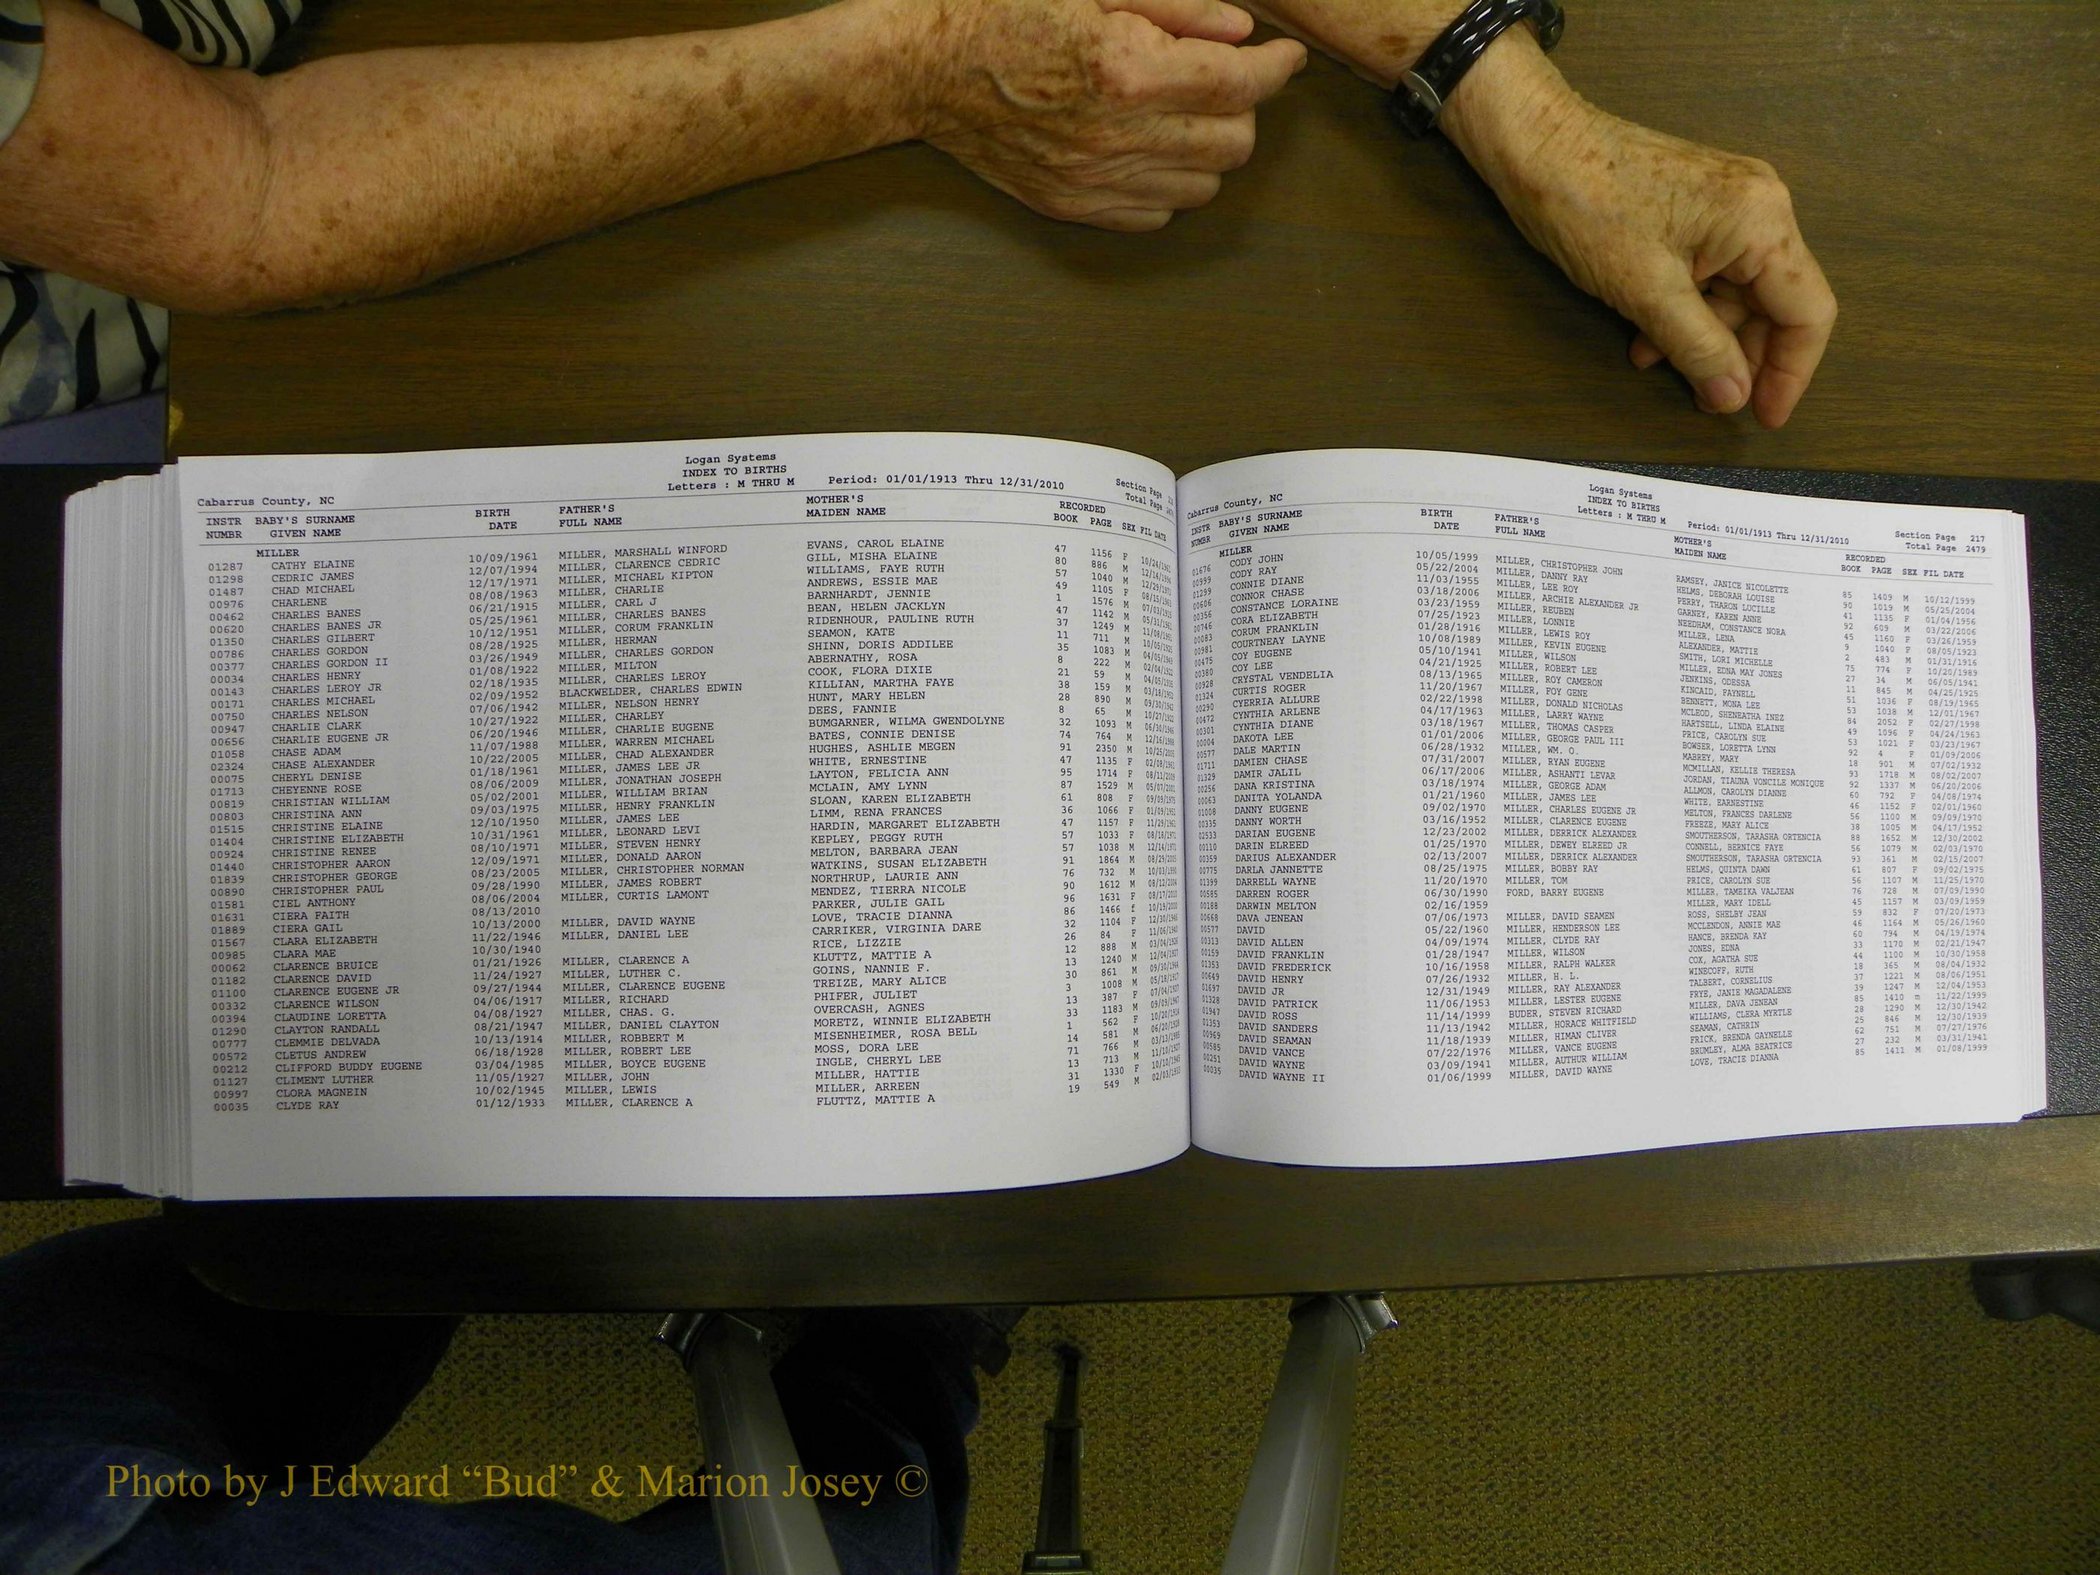 Logan Systems
INDEX TO BIRTHS
Letters : M THRU M Period: 01/01/1913 Thru 12/31/2010
Cabarrus County, NC Section Page
Total Page
INSTR BABY'S SURNAME BIRTH FATHER'S MOTHER'S RECORDED
NUMBR GIVEN NAME DATE FULL NAME MAIDEN NAME BOOK PAGE SEX FIL DATE
MILLER
01287 CATHY ELAINE 10/09/1961 MILLER, MARSHALL WINFORD EVANS, CAROL ELAINE 47 1156 F 10/24/1961
01298 CEDRIC JAMES 12/07/1994 MILLER, CLARENCE CEDRIC GILL, MISHA ELAINE 80 886 M 12/14/1994
01487 CHAD MICHAEL 12/17/1971 MILLER, MICHAEL KIPTON WILLIAMS, FAYE RUTH 57 1040 M 12/29/1971
00976 CHARLENE 08/08/1963 MILLER, CHARLIE ANDREWS, ESSIE MAE 49 1105 F 08/15/1963
00462 CHARLES BANES 06/21/1915 MILLER, CARL J BARNHARDT, JENNIE 1 1576 M 07/03/1915
00620 CHARLES BANES JR 05/25/1961 MILLER, CHARLES BANES BEAN, HELEN JACKLYN 47 1142 M 05/31/1961
01350 CHARLES GILBERT 10/12/1951 MILLER, CORUM FRANKLIN RIDENHOUR, PAULINE RUTH 37 1249 M
00786 CHARLES GORDON 08/28/1925 MILLER, HERMAN SEAMON, KATE 11 711 M
00377 CHARLES GORDON II 03/26/1949 MILLER, CHARLES GORDON SHINN, DORIS ADDILEE 35 1083 M
00034 CHARLES HENRY 01/08/1922 MILLER, MILTON ABERNATHY, ROSA 8 222 M
00143 CHARLES LEROY JR 02/18/1935 MILLER, CHARLES LEROY COOK, FLORA DIXIE 21 59 M
00171 CHARLES MICHAEL 02/09/1952 BLACKWELDER, CHARLES EDWIN KILLIAN, MARTHA FAYE 38 159 M
00750 CHARLES NELSON 07/06/1942 MILLER, NELSON HENRY HUNT, MARY HELEN 28 890 M
00947 CHARLIE CLARK 10/27/1922 MILLER, CHARLEY DEES, FANNIE 8 65 M
00656 CHARLIE EUGENE JR 06/20/1946 MILLER, CHARLIE EUGENE BUMGARNER, WILMA GWENDOLYNE 32 1093 M
01058 CHASE ADAM 11/07/1988 MILLER, WARREN MICHAEL BATES, CONNIE DENISE 74 764 M
02324 CHASE ALEXANDER 10/22/2005 MILLER, CHAD ALEXANDER HUGHES, ASHLIE MEGEN 91 2350 M
00075 CHERYL DENISE 01/18/1961 MILLER, JAMES LEE JR WHITE, ERNESTINE 47 1135 F
01713 CHEYENNE ROSE 08/06/2009 MILLER, JONATHAN JOSEPH LAYTON, FELICIA ANN 95 1714 F
00819 CHRISTIAN WILLIAM 05/02/2001 MILLER, WILLIAM BRIAN MCLAIN, AMY LYNN 87 1529 M
00803 CHRISTINA ANN 09/03/1975 MILLER, HENRY FRANKLIN SLOAN, KAREN ELIZABETH 61 808 F
01515 CHRISTINE ELAINE 12/10/1950 MILLER, JAMES LEE LIMM, RENA FRANCES 36 1066 F
01404 CHRISTINE ELIZABETH 10/31/1961 MILLER, LEONARD LEVI HARDIN, MARGARET ELIZABETH 47 1157 F
00924 CHRISTINE RENEE 08/10/1971 MILLER, STEVEN HENRY KEPLEY, PEGGY RUTH 57 1033 F
01440 CHRISTOPHER AARON 12/09/1971 MILLER, DONALD AARON MELTON, BARBARA JEAN 57 1038 M
01839 CHRISTOPHER GEORGE 08/23/2005 MILLER, CHRISTOPHER NORMAN WATKINS, SUSAN ELIZABETH 91 1864 M
00890 CHRISTOPHER PAUL 09/28/1990 MILLER, JAMES ROBERT NORTHRUP, LAURIE ANN 76 732 M
01581 CIEL ANTHONY 08/06/2004 MILLER, CURTIS LAMONT MENDEZ, TIERRA NICOLE 90 1612 M
01631 CIERA FAITH 08/13/2010 PARKER, JULIE GAIL 96 1631 F
01889 CIERA GAIL 10/13/2000 MILLER, DAVID WAYNE LOVE, TRACIE DIANNA 86 1466 f
01567 CLARA ELIZABETH 11/22/1946 MILLER, DANIEL LEE CARRIKER, VIRGINIA DARE 32 1104 F
00985 CLARA MAE 10/30/1940 RICE, LIZZIE 26 84 F
00062 CLARENCE BRUICE 01/21/1926 MILLER, CLARENCE A KLUTTZ, MATTIE A 12 888 M
01182 CLARENCE DAVID 11/24/1927 MILLER, LUTHER C. GOINS, NANNIE F. 13 1240 M
01100 CLARENCE EUGENE JR 09/27/1944 MILLER, CLARENCE EUGENE TREIZE, MARY ALICE 30 861 M
00332 CLARENCE WILSON 04/06/1917 MILLER, RICHARD PHIFER, JULIET 3 1008 M
00394 CLAUDINE LORETTA 04/08/1927 MILLER, CHAS. G. OVERCASH, AGNES 13 387 F
01290 CLAYTON RANDALL 08/21/1947 MILLER, DANIEL CLAYTON MORETZ, WINNIE ELIZABETH 33 1183 M
00777 CLEMMIE DELVADA 10/13/1914 MILLER, ROBBERT M MISENHEIMER, ROSA BELL 1 562 F
00572 CLETUS ANDREW 06/18/1928 MILLER, ROBERT LEE MOSS, DORA LEE 14 581 M
00212 CLIFFORD BUDDY EUGENE 03/04/1985 MILLER, BOYCE EUGENE INGLE, CHERYL LEE 71 766 M
01127 CLIMENT LUTHER 11/05/1927 MILLER, JOHN MILLER, HATTIE 13 713 M
00997 CLORA MAGNEIN 10/02/1945 MILLER, LEWIS MILLER, ARREEN 31 1330 F
00035 CLYDE RAY 01/12/1933 MILLER, CLARENCE A FLUTTZ, MATTIE A 19 549 M 02/03/1933
Logan Systems
INDEX TO BIRTHS
Letters : M THRU M Period: 01/01/1913 Thru 12/31/2010
Cabarrus County, NC Section Page 217
Total Page 2479
INSTR BABY'S SURNAME BIRTH FATHER'S MOTHER'S RECORDED
NUMBR GIVEN NAME DATE FULL NAME MAIDEN NAME BOOK PAGE SEX FIL DATE
MILLER
01676 CODY JOHN 10/05/1999 MILLER, CHRISTOPHER JOHN RAMSEY, JANICE NICOLETTE 85 1409 M 10/12/1999
00999 CODY RAY 05/22/2004 MILLER, DANNY RAY HELMS, DEBORAH LOUISE 90 1019 M 05/25/2004
01299 CONNIE DIANE 11/03/1955 MILLER, LEE ROY PERRY, THARON LUCILLE 41 1135 F 01/04/1956
00606 CONNOR CHASE 03/18/2006 MILLER, ARCHIE ALEXANDER JR GARNEY, KAREN ANNE 92 609 M 03/22/2006
00356 CONSTANCE LORAINE 03/23/1959 MILLER, REUBEN NEEDHAM, CONSTANCE NORA 45 1160 F 03/26/1959
00746 CORA ELIZABETH 07/25/1923 MILLER, LONNIE MILLER, LENA 9 1040 F 08/05/1923
00083 CORUM FRANKLIN 01/28/1916 MILLER, LEWIS ROY ALEXANDER, MATTIE 2 483 M 01/31/1916
00981 COURTNEAY LAYNE 10/08/1989 MILLER, KEVIN EUGENE SMITH, LORI MICHELLE 75 774 F 10/20/1989
00475 COY EUGENE 05/10/1941 MILLER, WILSON MILLER, EDNA MAY JONES 27 34 M 06/05/1941
00380 COY LEE 04/21/1925 MILLER, ROBERT LEE JENKINS, ODESSA 11 845 M 04/25/1925
00928 CRYSTAL VENDELIA 08/13/1965 MILLER, ROY CAMERON KINCAID, FAYNELL 51 1036 F 08/19/1965
01324 CURTIS ROGER 11/20/1967 MILLER, FOY GENE BENNETT, MONA LEE 53 1038 M 12/01/1967
00290 CYERRIA ALLURE 02/22/1998 MILLER, DONALD NICHOLAS MCLEOD, SHENEATHA INEZ 84 2052 F 02/27/1998
00472 CYNTHIA ARLENE 04/17/1963 MILLER, LARRY WAYNE HARTSELL, LINDA ELAINE 49 1096 F 04/24/1963
00301 CYNTHIA DIANE 03/18/1967 MILLER, THOMAS CASPER PRICE, CAROLYN SUE 53 1021 F 03/23/1967
00004 DAKOTA LEE 01/01/2006 MILLER, GEORGE PAUL III BOWSER, LORETTA LYNN 92 4 F 01/09/2006
00577 DALE MARTIN 06/28/1932 MILLER, WM. O. MABREY, MARY 18 901 M 07/02/1932
01711 DAMIEN CHASE 07/31/2007 MILLER, RYAN EUGENE MCMILLAN, KELLIE THERESA 93 1718 M 08/02/2007
01329 DAMIR JALIL 06/17/2006 MILLER, ASHANTI LEVAR JORDAN, TIAUNA VONCILE MONIQUE 92 1337 M 06/20/2006
00256 DANA KRISTINA 03/18/1974 MILLER, GEORGE ADAM ALLMON, CAROLYN DIANNE 60 792 F 04/08/1974
00063 DANITA YOLANDA 01/21/1960 MILLER, JAMES LEE WHITE, EARNESTINE 46 1152 F 02/01/1960
01008 DANNY EUGENE 09/02/1970 MILLER, CHARLES EUGENE JR MELTON, FRANCES DARLENE 56 1100 M 09/09/1970
00335 DANNY WORTH 03/16/1952 MILLER, CLARENCE EUGENE FREEZE, MARY ALICE 38 1005 M 04/17/1952
02533 DARIAN EUGENE 12/23/2002 MILLER, DERRICK ALEXANDER SMOUTHERSON, TARASHA ORTENCIA 88 1652 M 12/30/2002
00110 DARIN ELREED 01/25/1970 MILLER, DEWEY ELREED JR CONNELL, BERNICE FAYE 56 1079 M 02/03/1970
00359 DARIUS ALEXANDER 02/13/2007 MILLER, DERRICK ALEXANDER SMOUTHERSON, TARASHA ORTENCIA 93 361 M 02/15/2007
00775 DARLA JANNETTE 08/25/1975 MILLER, BOBBY RAY HELMS, QUINTA DAWN 61 807 F 09/02/1975
01399 DARRELL WAYNE 11/20/1970 MILLER, TOM PRICE, CAROLYN SUE 56 1107 M 11/25/1970
00585 DARREN ROGER 06/30/1990 FORD, BARRY EUGENE MILLER, TAMEIKA VALJEAN 76 728 M 07/09/1990
00188 DARWIN MELTON 02/16/1959 MILLER, MARY IDELL 45 1157 M 03/09/1959
00668 DAVA JENEAN 07/06/1973 MILLER, DAVID SEAMEN ROSS, SHELBY JEAN 59 832 F 07/20/1973
00577 DAVID 05/22/1960 MILLER, HENDERSON LEE MCCLENDON, ANNIE MAE 46 1164 M 05/26/1960
00313 DAVID ALLEN 04/09/1974 MILLER, CLYDE RAY HANCE, BRENDA KAY 60 794 M 04/19/1974
00159 DAVID FRANKLIN 01/28/1947 MILLER, WILSON JONES, EDNA 33 1170 M 02/21/1947
01353 DAVID FREDERICK 10/16/1958 MILLER, RALPH WALKER COX, AGATHA SUE 44 1100 M 10/30/1958
00649 DAVID HENRY 07/26/1932 MILLER, H. L. WINECOFF, RUTH 18 365 M 08/04/1932
01697 DAVID JR 12/31/1949 MILLER, RAY ALEXANDER TALBERT, CORNELIUS 37 1221 M 08/06/1951
01328 DAVID PATRICK 11/06/1953 MILLER, LESTER EUGENE FRYE, JANIE MAGADALENE 39 1247 M 12/04/1953
01947 DAVID ROSS 11/14/1999 BUDER, STEVEN RICHARD MILLER, DAVA JENEAN 85 1410 m 11/22/1999
01353 DAVID SANDERS 11/13/1942 MILLER, HORACE WHITFIELD WILLIAMS, CLERA MYRTLE 28 1290 M 12/30/1942
00969 DAVID SEAMAN 11/18/1939 MILLER, HIMAN CLIVER SEAMAN, CATHRIN 25 846 M 12/30/1939
00585 DAVID VANCE 07/22/1976 MILLER, VANCE EUGENE FRICK, BRENDA GAYNELLE 62 751 M 07/27/1976
00251 DAVID WAYNE 03/09/1941 MILLER, AUTHUR WILLIAM BRUMLEY, ALMA BEATRICE 27 232 M 03/31/1941
00035 DAVID WAYNE II 01/06/1999 MILLER, DAVID WAYNE LOVE, TRACIE DIANNA 85 1411 M 01/08/1999
Photo by J Edward “Bud” & Marion Josey ©